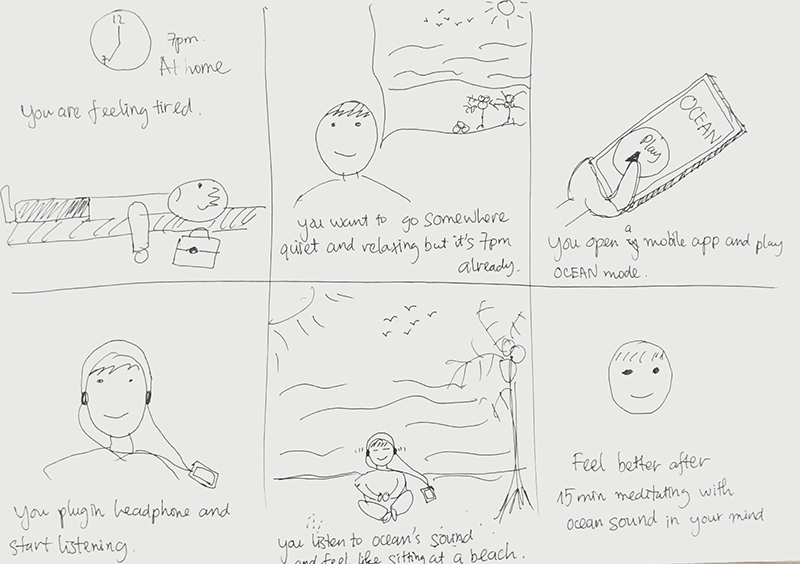 12
7
7pm.
At home
You are feeling tired.
you want to go somewhere
quiet and relaxing but it's 7pm
already.
OCEAN
Play
You open a mobile app and play
OCEAN mode.
You plugin headphone and
start listening.
you listen to ocean's sound
and feel like sitting at a beach.
Feel better after
15 min meditating with
ocean sound in your mind